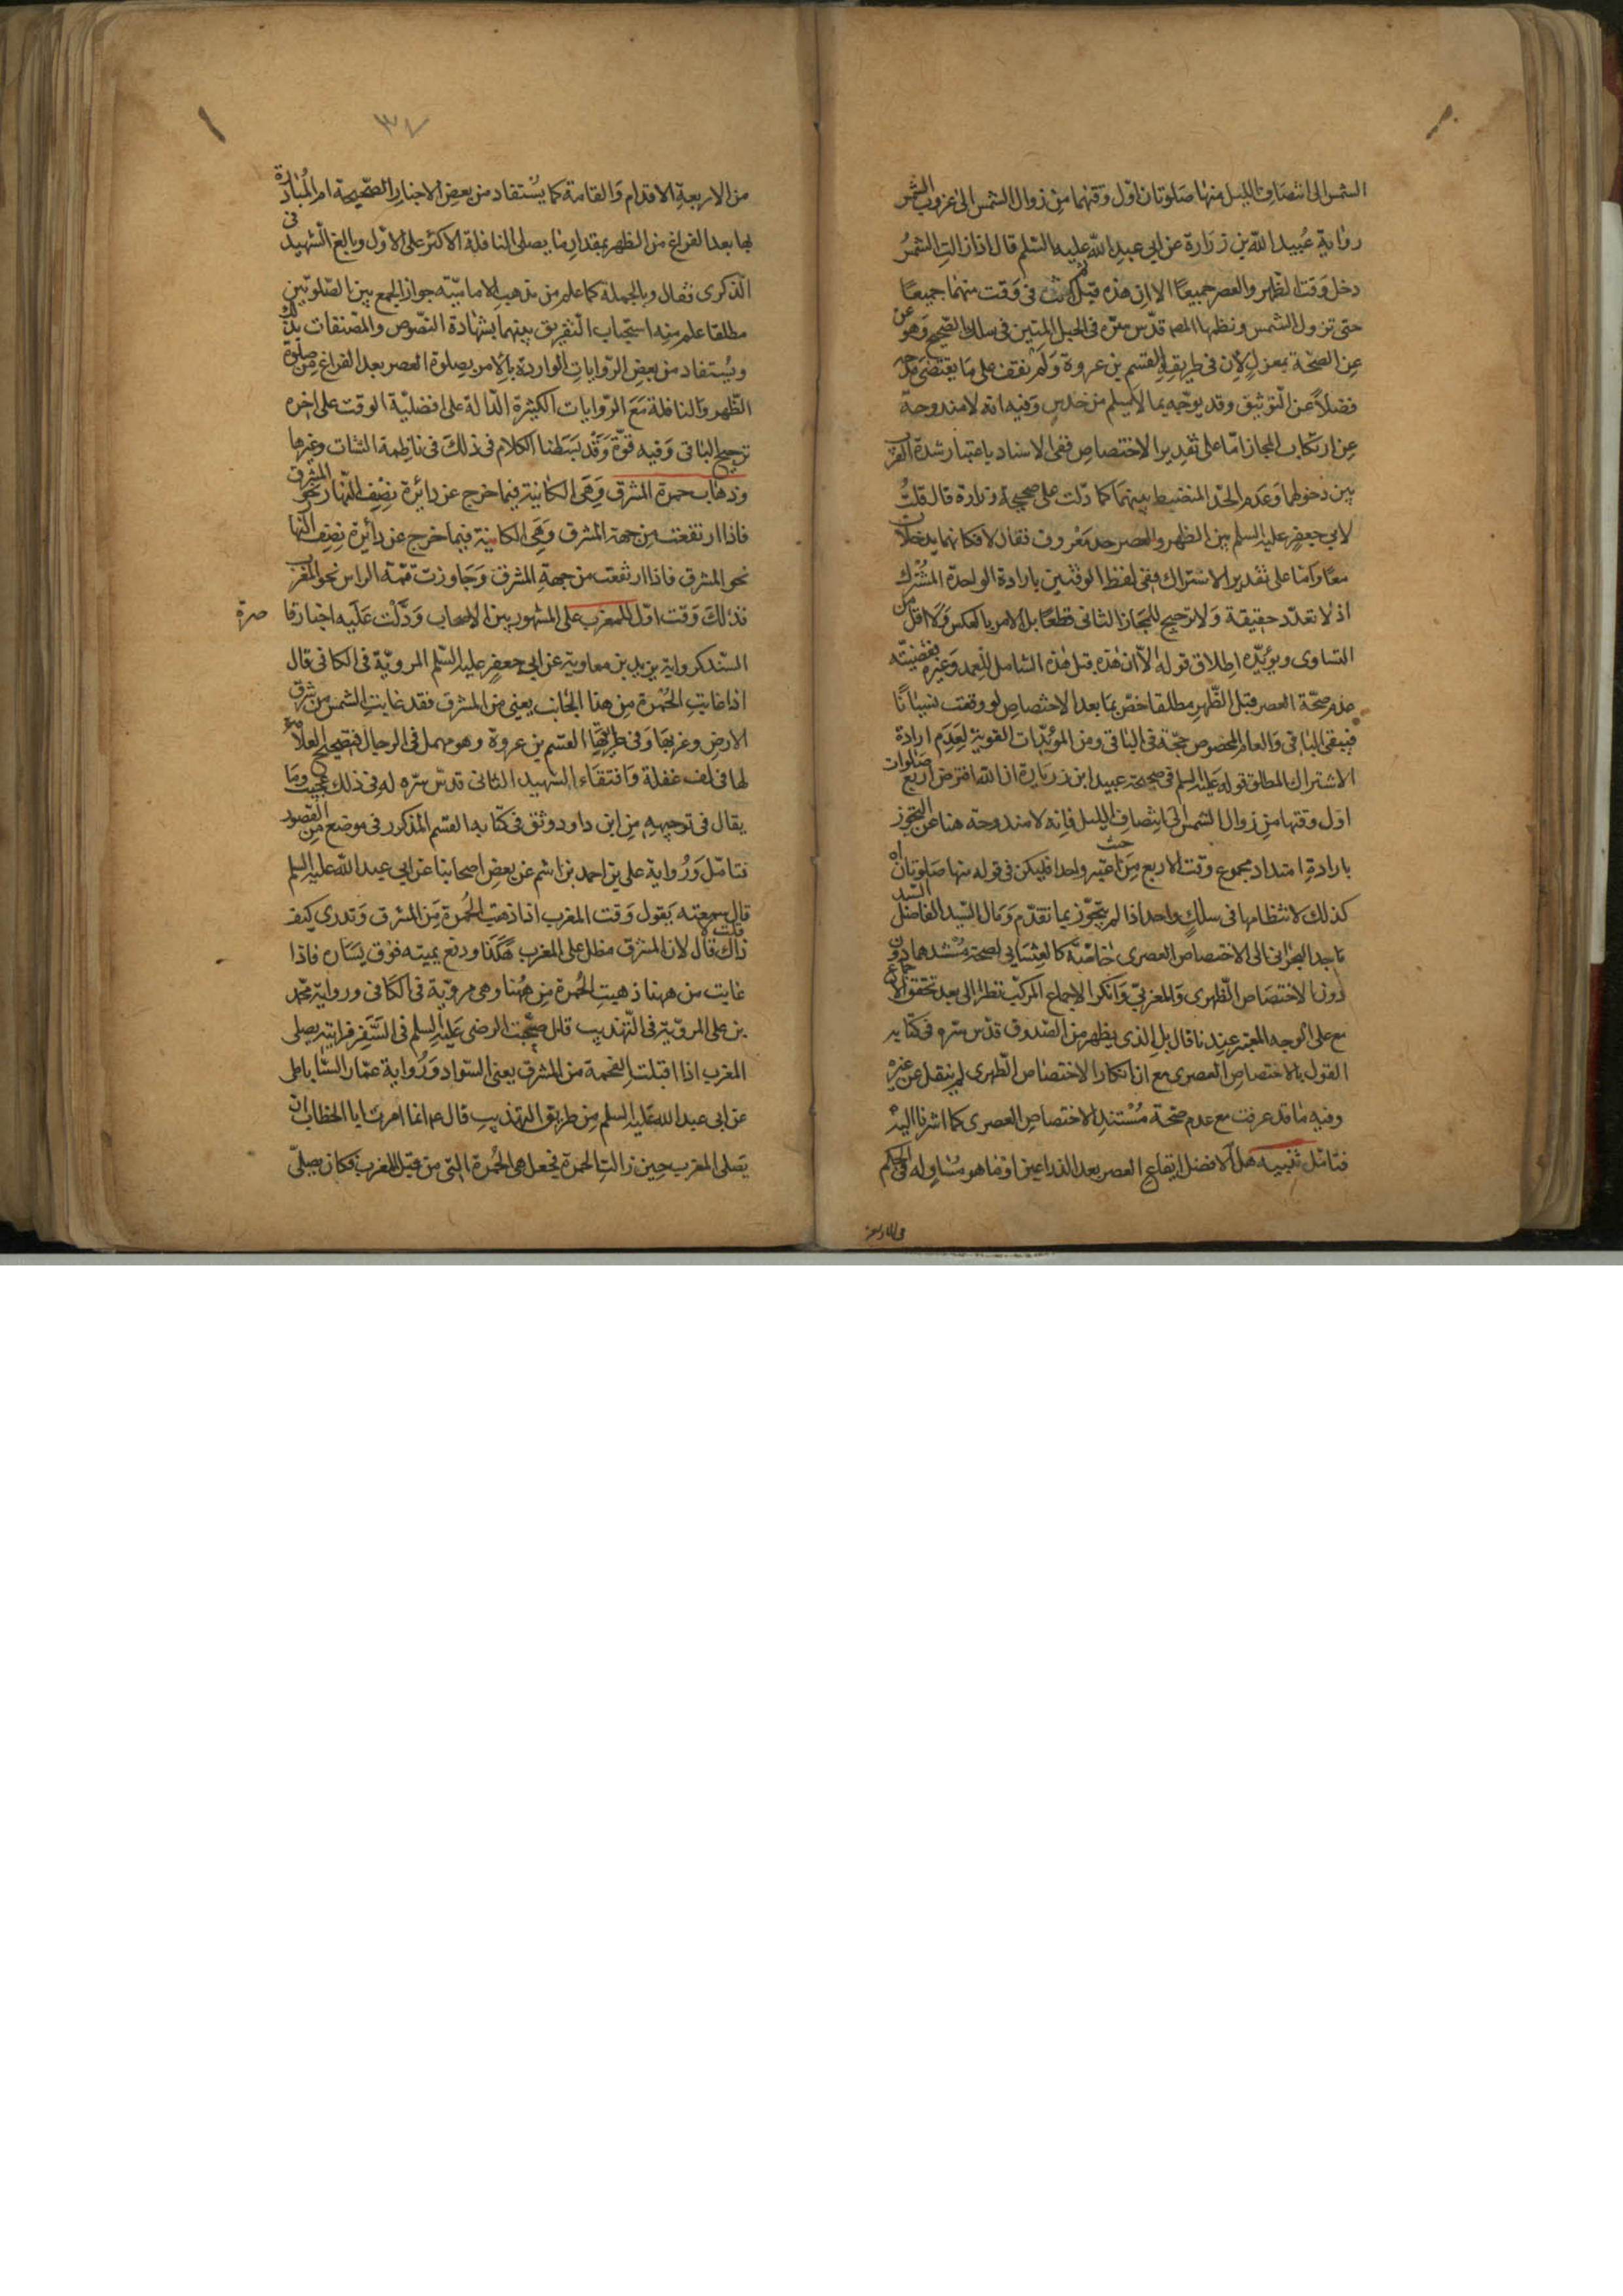 الشمس الى انتصاف الليل منها صلوتان اول وقتهما من زوال الشمس الى غروب الشمس
رواية عبيد الله بن زرارة عن ابي عبد الله عليه السلم قال اذا زالت الشمس
دخل وقت الظهر والعصر جميعا الا ان هذه قبل هذه ثم انت فى وقت منهما جميعا
حتى تزول الشمس ونظمها المصر قدس سره فى الحبل المتين فى سلك الصحيح وهو
عن الصحة بمعزل لان فى طريقه القسم بن عروة ولم نقف على ما يقتضى مدحه
فضلا عن التوثيق وقد يوجه بما لا يسلم من خدس وفيه انه لا مندوحة
عن ارتكاب المجاز اما على تقدير الاختصاص ففى الاسناد باعتبار شدة القرب
بين دخولهما وعدم الحد المنضبط بينهما كما دلت على صحيحة زرارة قال قلت
لابي جعفر عليه السلم بين الظهر والعصر حد معروف فقال لا فكانهما يدخلان
معا واما على تقدير الاشتراك ففى لفظ الوقتين بارادة الواحدة المشترك
اذ لا تعدد حقيقة ولا ترجيح للمجاز الثانى قطعا بل الامر بالعكس ولا اقل من
التساوى ويؤيده اطلاق قوله الا ان هذه قبل هذه الشامل للعمد وغيره بقضيته
عدم صحة العصر قبل الظهر مطلقا خص بما بعد الاختصاص لو وقعت نسيانا
فيبقى الباقى والعام المخصوص حجة فى الباقى ومن المؤيدات القوية لعدم ارادة
الاشتراك المطلق قوله عليه السلم فى صحيحة عبيد ابن زرارة ان الله افترض اربع صلوات
اول وقتها من زوال الشمس الى انتصاف الليل فانه لا مندوحة هنا عن التجوز
بارادة امتداد مجموع وقت الاربع من حيث واحد فليكن فى قوله منها صلوتان اه
كذلك لانتظامها فى سلك واحد اذا لم يتجوز بما تقدم ومال السيد الفاضل السيد
ماجد البحرانى الى الاختصاص العصرى خاصة كالعشايى لصحة مستندهما دون
دون الاختصاص الظهرى والمغربى وانكر الاجماع المركب نظرا الى بعد تحقق الاجماع
مع على الوجه المعتبر عندنا قال بل الذى يظهر من الصدوق قدس سره فى كتابه
القول بالاختصاص العصرى مع انكار الاختصاص الظهرى لم ينقل عن غيره
وفيه ما قد عرفت مع عدم صحة مستند الاختصاص العصرى كما اشرنا اليه
فتامل تنبيه هل الافضل ايقاع العصر بعد الذراعين او ما هو مساو له فى الحكم
٣٧
من الاربعة الاقدام والقامة كما يستفاد من بعض الاخبار الصحيحة ام المبادرة
بها بعد الفراغ من الظهر بمقدار ما يصلى النافلة الاكثر على الاول وبالغ الشهيد فى
الذكرى فقال وبالجملة كما علم من مذهب الامامية جواز الجمع بين الصلوتين
مطلقا علم منه استحباب التفريق بينهما بشهادة النصوص والمصنفات بذلك
ويستفاد من بعض الروايات الواردة بالامر بصلوة العصر بعد الفراغ من صلوة
الظهر والنافلة مع الروايات الكثيرة الدالة على افضلية الوقت على اخره
ترجيح الثانى وفيه قوة وقد بسطنا الكلام فى ذلك فى ناظمة الشتات وغيرها
وذهاب حمرة المشرق وهى الكائنة فيما خرج عن دائرة نصف النهار نحو المشرق
فاذا ارتفعت من جهة المشرق وهى الكائنة فيما خرج عن دائرة نصف النهار
نحو المشرق فاذا ارتفعت من جهة المشرق وجاوزت قمة الراس نحو المغرب
فذلك وقت اول للمغرب على المشهور بين الاصحاب ودلت عليه اخبار قاصرة
السند كرواية بريد بن معاوية عن ابى جعفر عليه السلم المروية فى الكافى قال
اذا غابت الحمرة من هذا الجانب يعنى من المشرق فقد غابت الشمس من شرق
الارض وغربها وفى طريقها القسم بن عروة وهو مهمل فى الرجال فتصحيح العلامة
لها فى لف غفلة واقتفاء الشهيد الثانى قدس سره له فى ذلك عجيب وما
يقال فى توجيهه من ابن داود وثق فى كتابه القسم المذكور فى موضع من القصور
فتامل ورواية على بن احمد بن اشيم عن بعض اصحابنا عن ابى عبد الله عليه السلم
قال سمعته يقول وقت المغرب اذا ذهبت الحمرة من المشرق وتدرى كيف
ذاك قلت لا قال لان المشرق مطل على المغرب هكذا ورفع يمينه فوق يساره فاذا
غابت من ههنا ذهبت الحمرة من ههنا وهى مروية فى الكافى ورواية محمد
بن على المروية فى التهذيب قال صحبت الرضى عليه السلم فى السفر فرايته يصلى
المغرب اذا اقبلت الفحمة من المشرق يعنى السواد ورواية عمار الساباطى
عن ابى عبد الله عليه السلم من طريق التهذيب قال انما امرت ابا الخطاب ان
يصلى المغرب حين زالت الحمرة فجعل هى الحمرة التى من قبل المغرب فكان يصلى